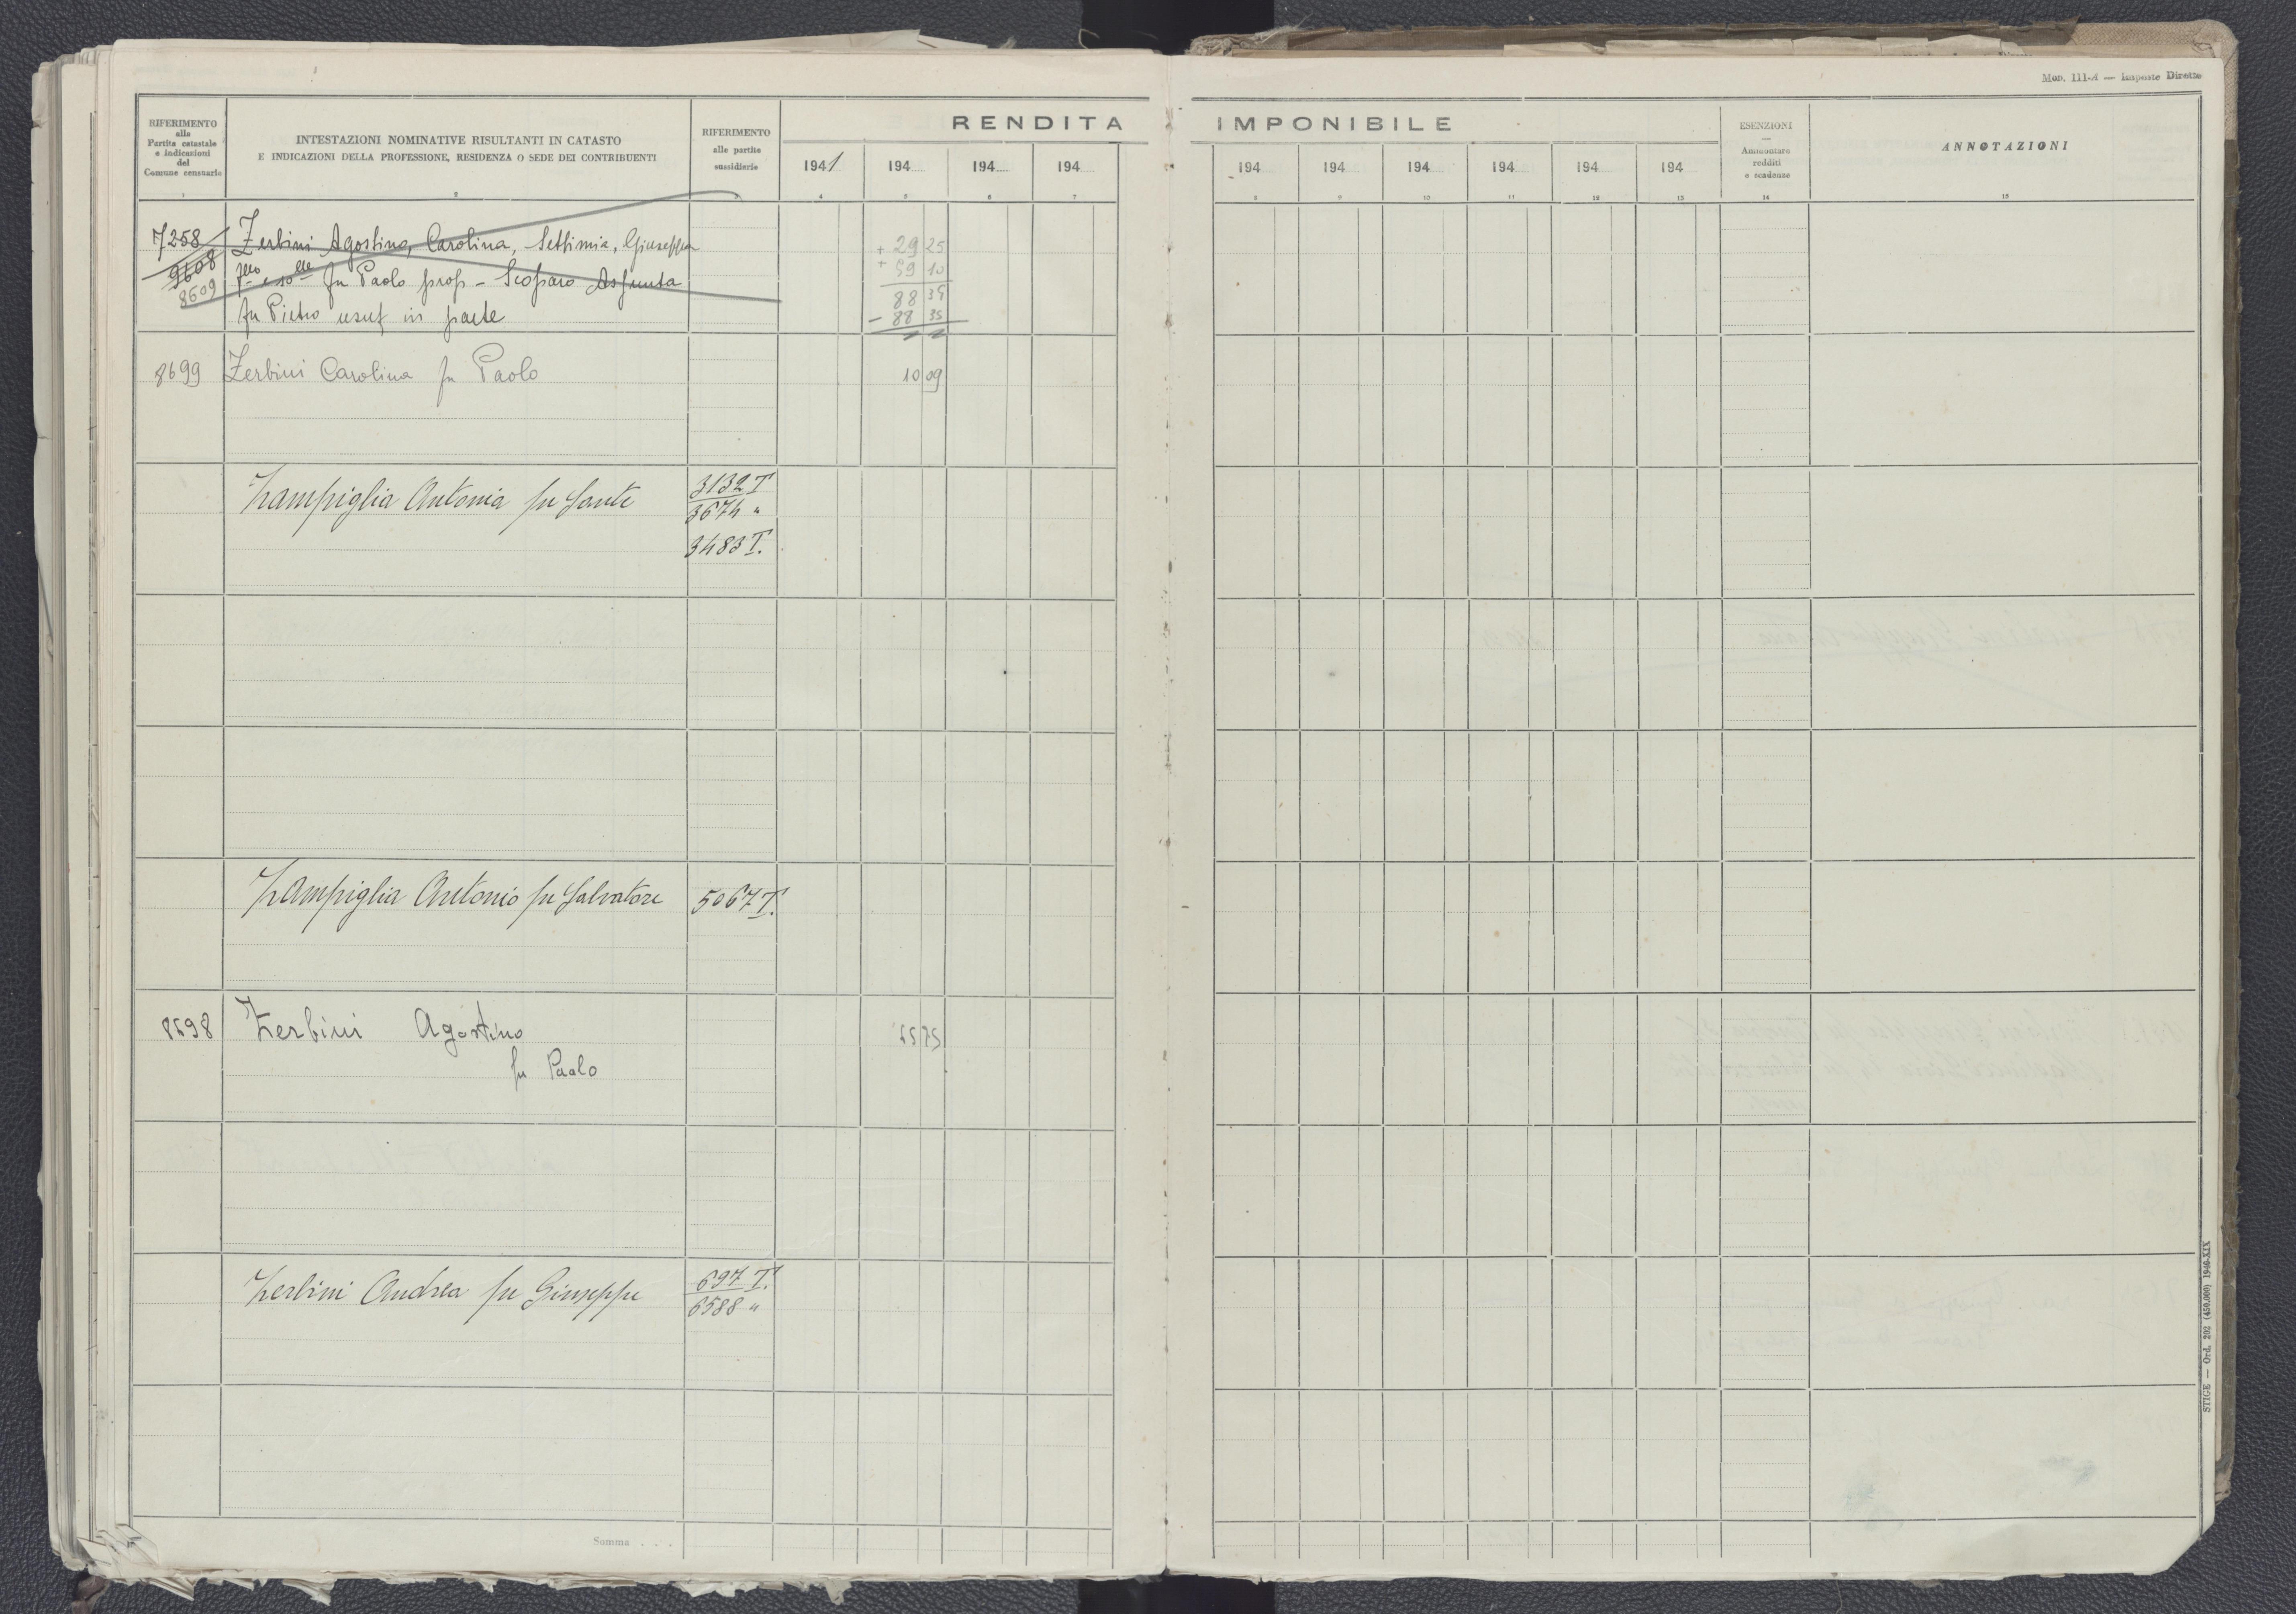 Mod. 111-A — Imposte Dirette
RIFERIMENTO
alla
Partita catastale
e indicazioni
del
Comune censuario
INTESTAZIONI NOMINATIVE RISULTANTI IN CATASTO
E INDICAZIONI DELLA PROFESSIONE, RESIDENZA O SEDE DEI CONTRIBUENTI
RIFERIMENTO
alle partite
sussidiarie
RENDITA IMPONIBILE
1941 194 194 194 194 194 194 194 194 194
ESENZIONI
—
Ammontare
redditi
e scadenze
ANNOTAZIONI
1 2 3 4 5 6 7 8 9 10 11 12 13 14 15
7258 Zerbini Agostino, Carolina, Settimia, Giuseppa + 29 25
9608 fu Paolo prop - Scoparo Assunta + 59 10
8609
88 35
fu Pietro usuf in parte - 88 35
8699 Zerbini Carolina fu Paolo 10 09
Zampiglia Antonia fu Sante 3132 T
3674 "
3483 T.
Zampiglia Antonio fu Salvatore 5067 T.
8698 Zerbini Agostino
fu Paolo
Zerbini Andrea fu Giuseppe 697 T.
6588 "
Somma . . .
STIGE — Ord. 202 (450.000) 1940-XIX